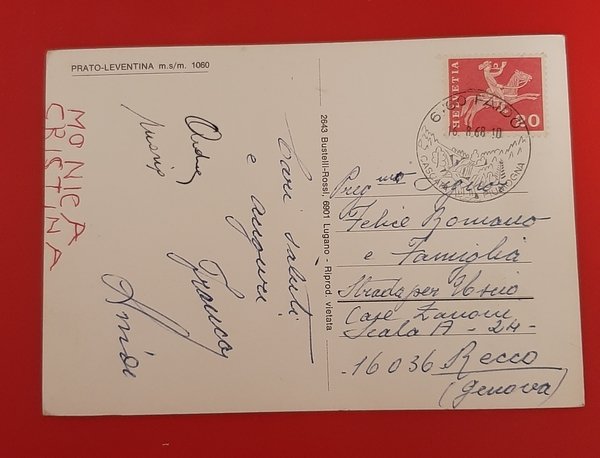 PRATO-LEVENTINA m.s/m. 1060
MONICA
CRISTINA
Cari saluti
e auguri
Franco
2643 Bustelli-Rossi, 6901 Lugano - Riprod. vietata
HELVETIA
20
FAIDO
8.68.10
Felice Romano
e Famiglia
Strada per Uscio
Case Zanoni
Scala A - 24 -
- 16036 Recco
(Genova)